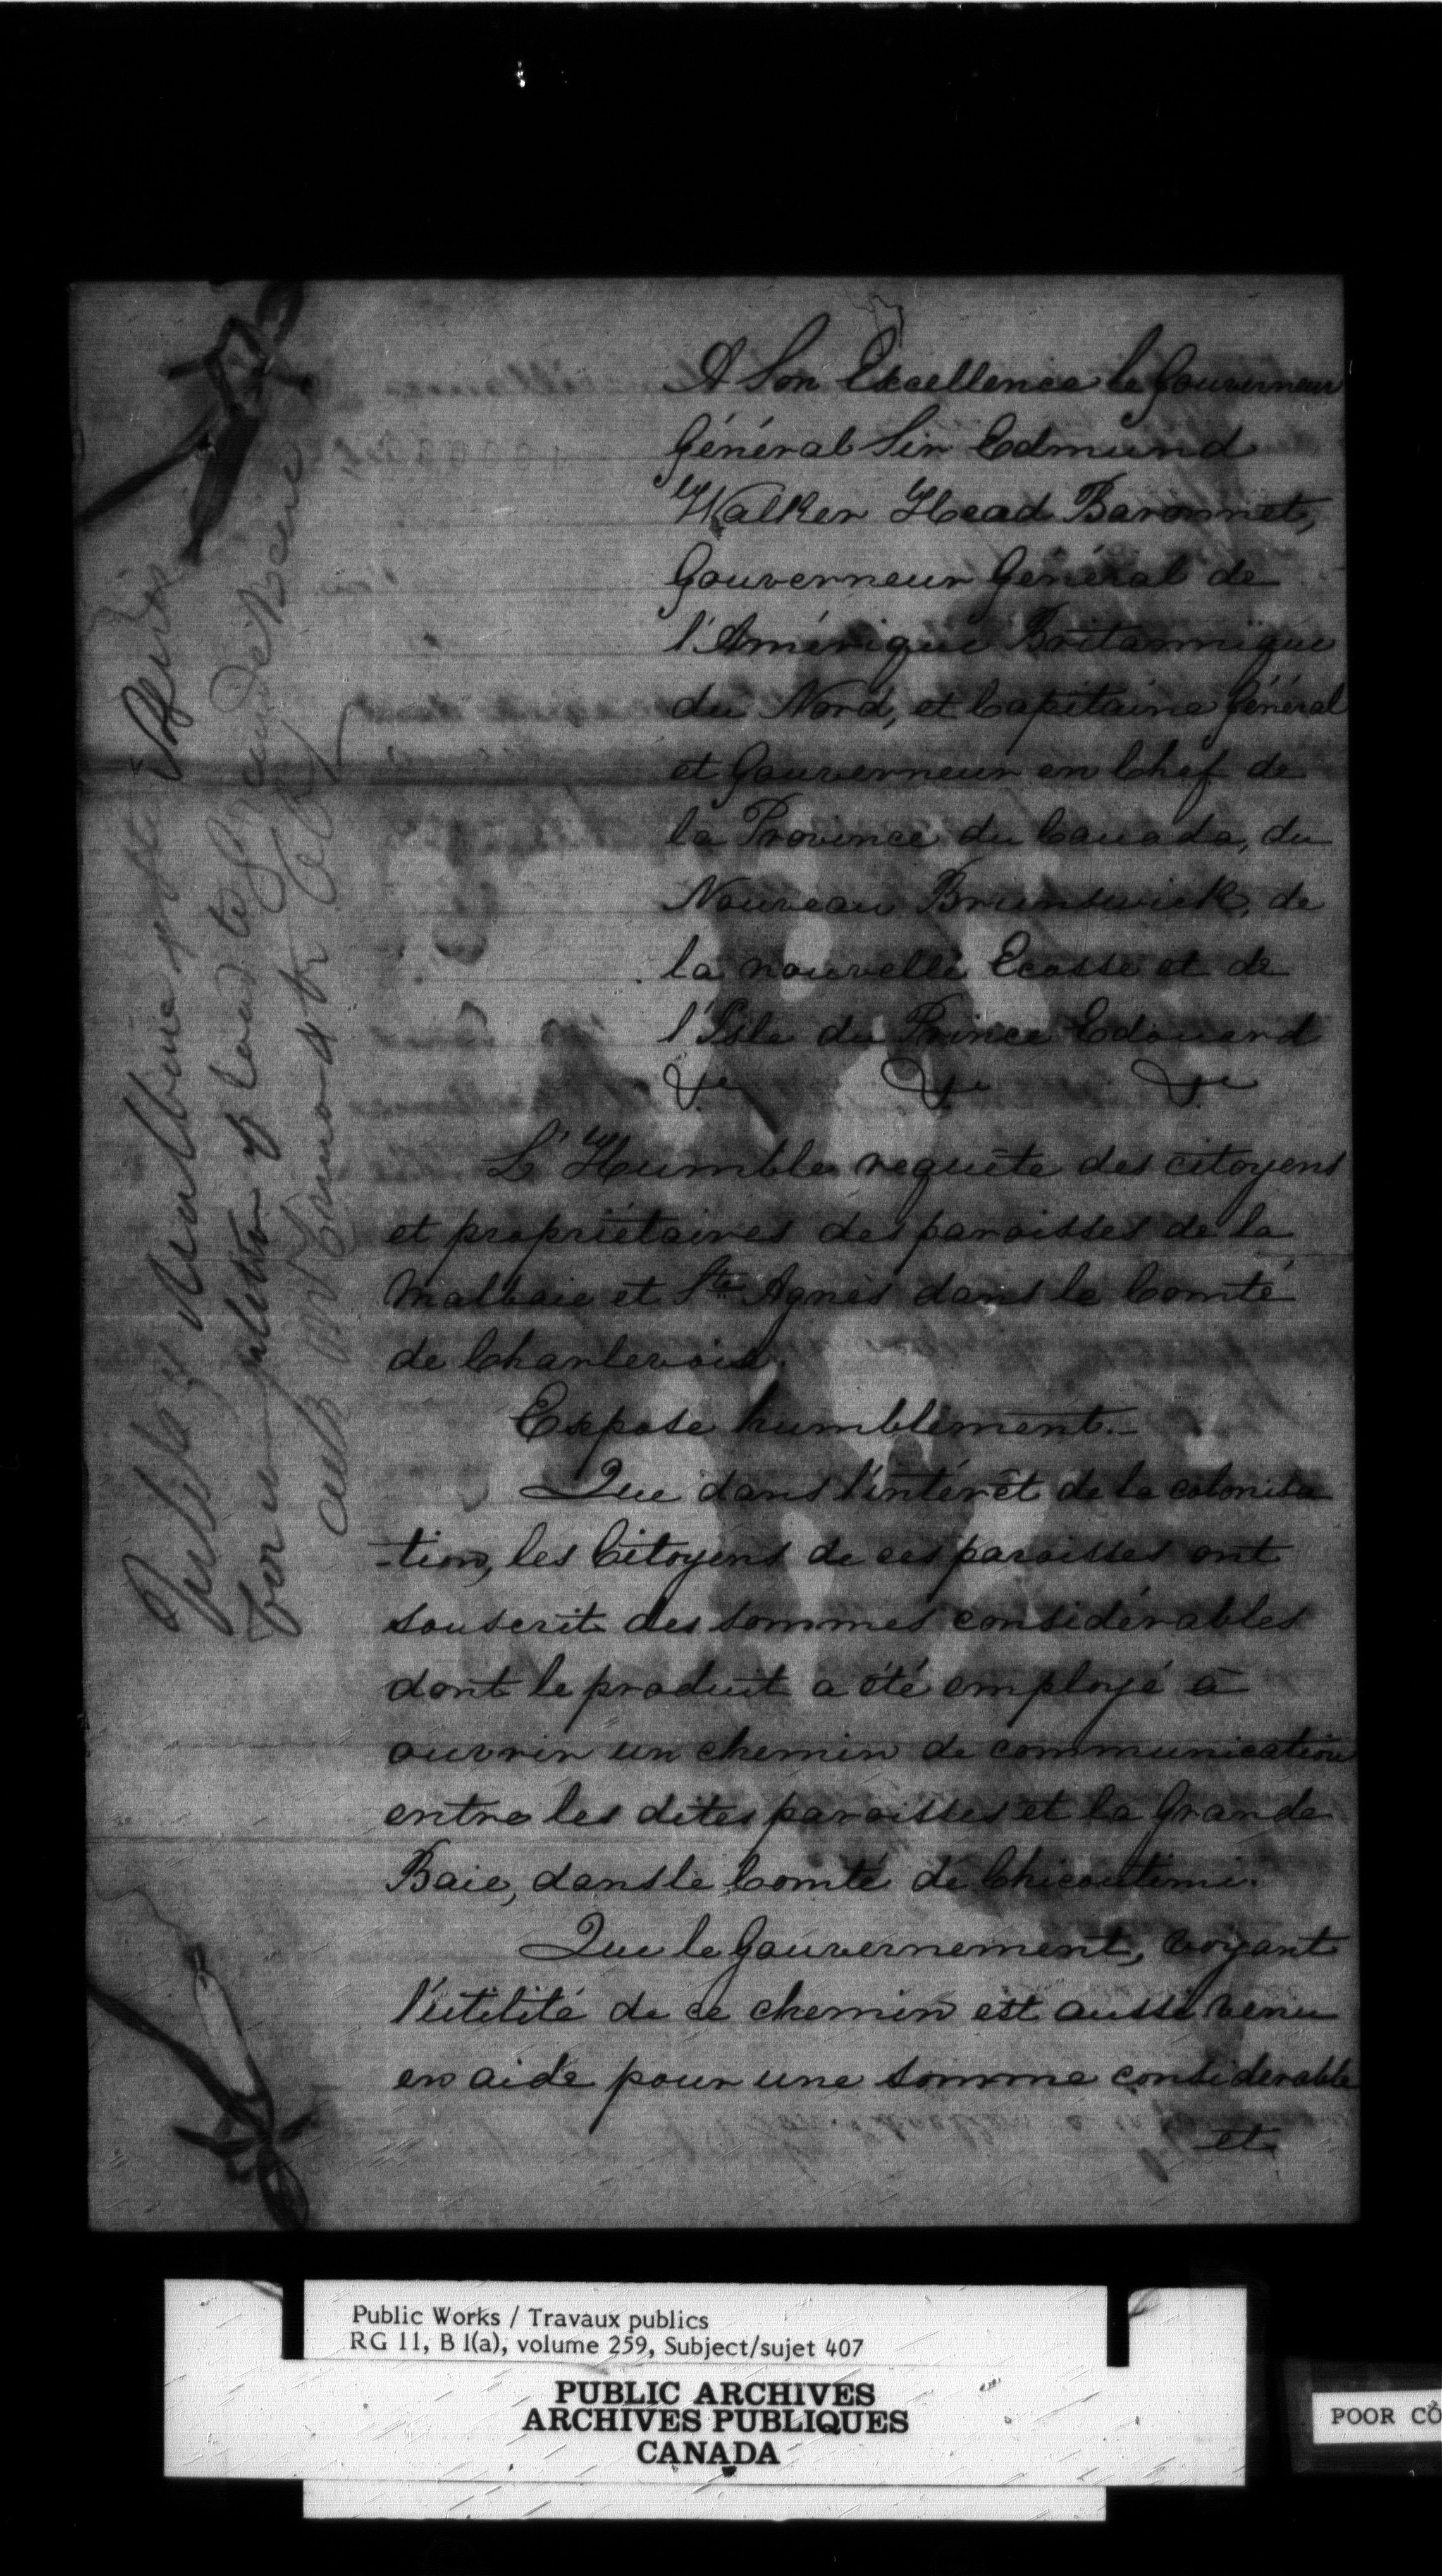 A Son Excellence le Gouverneur
Général Sir Edmund
Walker Head Baronnet,
Gouverneur Général de
l'Amérique Britannique
du Nord, et Capitaine Général
et Gouverneur en Chef de
la Province du Canada, du
Nouveau Brunswick, de
la nouvelle Ecosse et de
l'Isle du Prince Edouard
&c &c &c
L'Humble requête des citoyens
et propriétaires des paroisses de la
Malbaie et Ste Agnès dans le Comté
de Charlevoix.
Expose humblement.-
Que dans l'intérêt de la colonisa
-tion, les Citoyens de ces paroisses ont
souscrit des sommes considérables
dont le produit a été employé à
ouvrir un chemin de communication
entre les dites paroisses et la Grande
Baie, dans le Comté de Chicoutimi.
Que le Gouvernement, voyant
l'utilité de ce chemin est aussi venu
en aide pour une somme considerable
et
petition of
Public Works / Travaux publics
RG 11, B 1(a), volume 259, Subject/sujet 407
PUBLIC ARCHIVES
ARCHIVES PUBLIQUES
CANADA
POOR CO